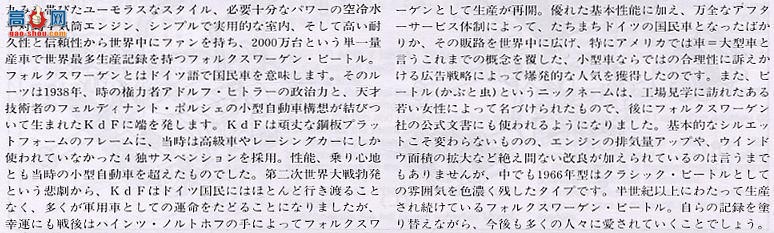 丸みを帯びたユーモラスなスタイル、必要十分なパワーの空冷水
エンジン、シンプルで実用的な室内、そして高い耐
久性と信頼性から世界中にファンを持ち、2000万台という単一量
産車で世界最多生産記録を持つフォルクスワーゲン・ビートル。
フォルクスワーゲンとはドイツ語で国民車を意味します。そのルー
ツは1938年、時の権力者アドルフ・ヒトラーの政治力と、天才
技術者のフェルディナント・ポルシェの小型自動車構想が結びつ
いて生まれたKdFに端を発します。KdFは頑丈な鋼板プラッ
トフォームのフレームに、当時は高級車やレーシングカーにしか
使われていなかった4独サスペンションを採用。性能、乗り心地
とも当時の小型自動車を超えたものでした。第二次世界大戦勃発
という悲劇から、KdFはドイツ国民にはほとんど行き渡ること
なく、多くが軍用車としての運命をたどることになりましたが、
幸運にも戦後はハインツ・ノルトホフの手によってフォルクスワ
ーゲンとして生産が再開。優れた基本性能に加え、万全なアフタ
ーサービス体制によって、たちまちドイツの国民車となったばか
りか、その販路を世界中に広げ、特にアメリカでは車＝大型車と
言うこれまでの概念を覆した、小型車ならではの合理性に訴えか
ける広告戦略によって爆発的な人気を獲得したのです。また、ビ
ートル(かぶと虫)というニックネームは、工場見学に訪れたある
若い女性によって名づけられたもので、後にフォルクスワーゲン
社の公式文書にも使われるようになりました。基本的なシルエッ
トこそ変わらないものの、エンジンの排気量アップや、ウインド
ウ面積の拡大など絶え間ない改良が加えられているのは言うまで
もありませんが、中でも1966年型はクラシック・ビートルとして
の雰囲気を色濃く残したタイプです。半世紀以上にわたって生産
され続けているフォルクスワーゲン・ビートル。自らの記録を塗
り替えながら、今後も多くの人々に愛されていくことでしょう。